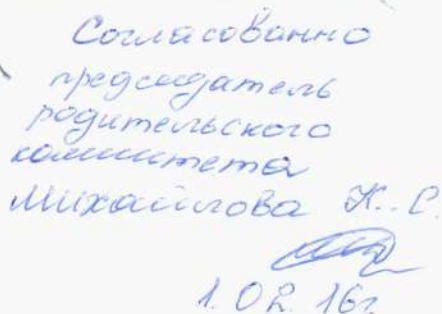 Согласованно
председатель
родительского
комитета
Михайлова К.С.
1.02.16г